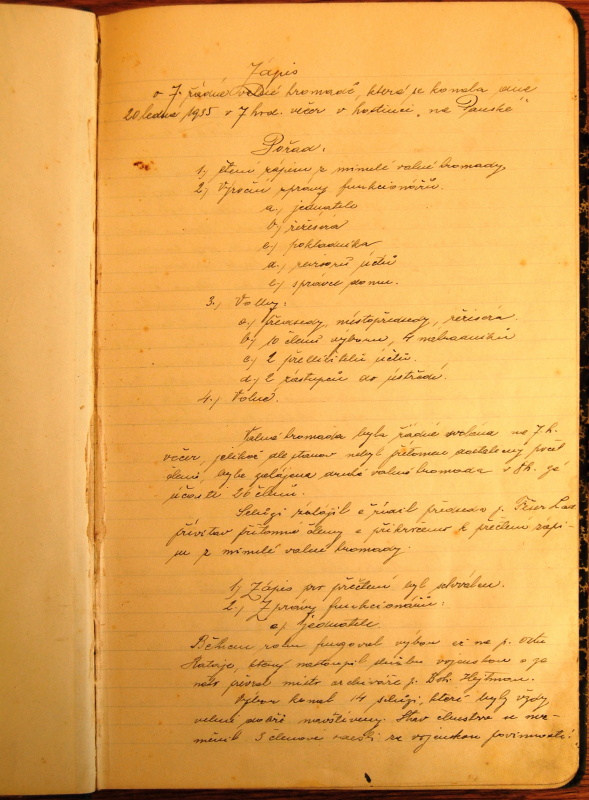 Zápis
o 7. řádné valné hromadě, která se konala dne
20. ledna 1935 v 7 hod. večer v hostinci „na Panské"
Pořad:
1.) čtení zápisu z minulé valné hromady
2.) Výroční zprávy funkcionářů.
a.) jednatele
b.) režiséra
c.) pokladníka
d.) revisorů účtů
e.) správce domu.
3.) Volby:
a.) předsedy, místopředsedy, režiséra.
b.) 10 členů výboru, 4 náhradníků
c.) 2 přehlížitelů účtů.
d.) 2 zástupců do ústředí.
4.) Volné.
Valná hromada byla řádně svolána na 7 h.
večer, jelikož dle stanov nebyl přítomen dostatečný počet
členů, byla zahájena druhá valná hromada v 8 h. za
účasti 26 členů.
Schůzi zahájil a řídil předseda p.
přivítav přítomné členy a přikročeno k přečtení zápi-
su z minulé valné hromady.
1.) Zápis po přečtení byl schválen.
2.) Zprávy funkcionářů:
a.) jednatele.
Během roku fungoval výbor až na p. Otu
který nastoupil službu vojenskou a za
něho převzal místo archiváře p. Boh. Hejtman.
Výbor konal 14 schůzí, které byly vždy
velmi dobře navštíveny. Stav členstva se nez-
měnil 3 členové odešli za vojenskou povinností.